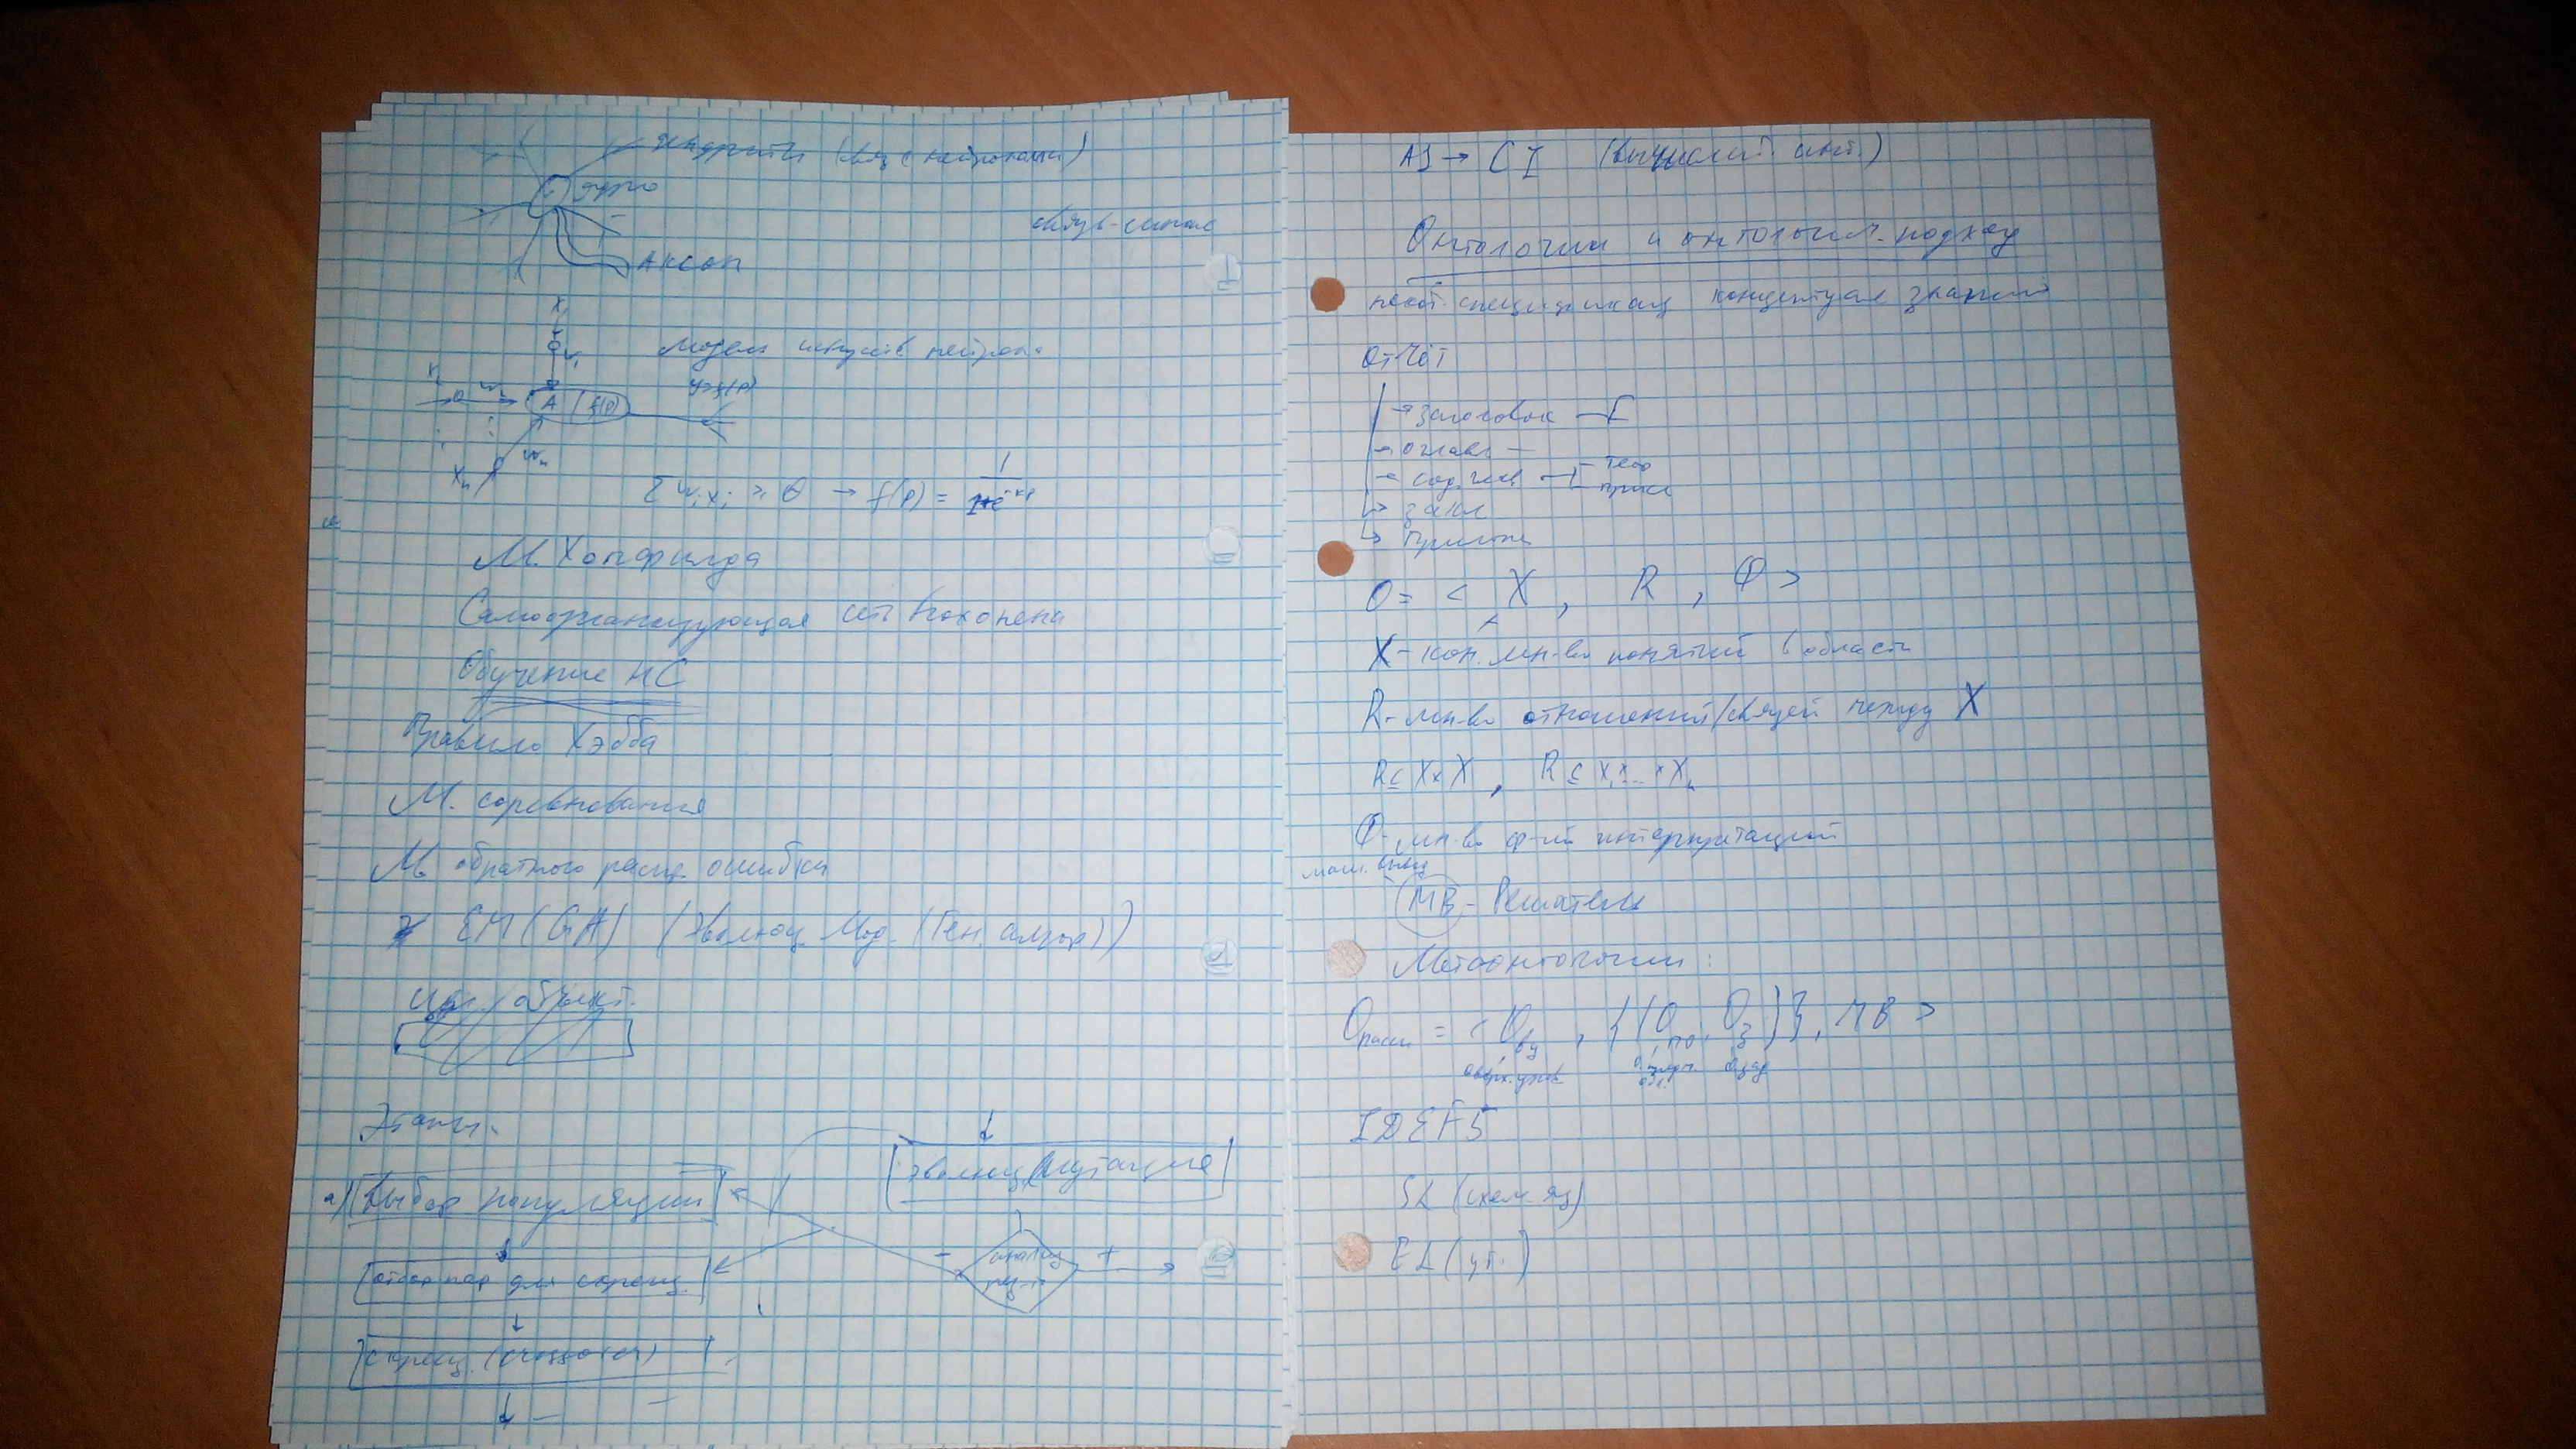 дендриты (связ с нейронами)
ядро
связь-синапс
Аксон
X₁
w₁
Модель искусств нейрона
y=f(P)
A | f(P)
Xₙ wₙ
Σ wᵢxᵢ ≥ θ → f(P) = 1
М. Хопфилда
Самоорганизующаяся сеть Кохонена
Обучение НС
Правило Хэбба
М. соревнования
М. обратного расп. ошибки
ЕМ (GA) (Эволюц. Мод. (Ген. алгор))
Этапы.
эволюц. мутация
а) Выбор популяции
анализ рез-т
- +
отбор пар для скрещ.
скрещ. (crossover)
AI → CI (вычислит. инт.)
Онтологии и онтологич. подход
некот. спецификац концептуал знаний
Отчёт
→ Заголовок
→ оглавл
→ содерж
→ закл
→ Прилож
O = < X, R, Ф >
X - кон. мн-во понятий в области
R - мн-во отношений/связей между X
R ⊆ X×X, R ⊆ X₁×...×Xₙ
Ф - мн-во ф-ий интерпретаций
маш. вывод
МВ - Решатель
Метаонтологии:
Oрасш = < Oву, {(Oпо, Oз)}, МВ >
О верх. уров О предм. обл. О зад
IDEF5
SL (схем. яз)
EL (ут.)